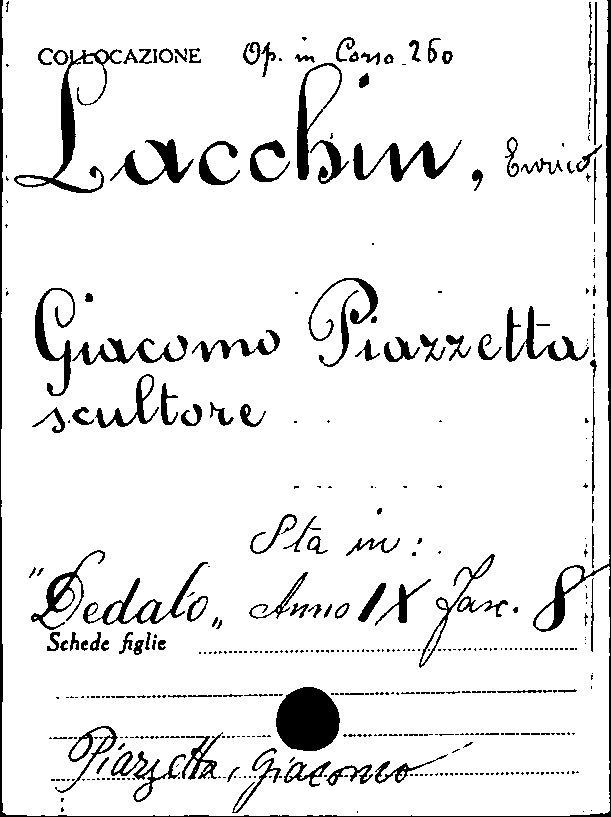 COLLOCAZIONE Op. in Corso 260
Lacchin, Enrico
Giacomo Piazzetta
scultore
Sta in:
"Dedalo„ Anno IX Fasc. 8
Schede figlie
Piazzetta, Giacomo